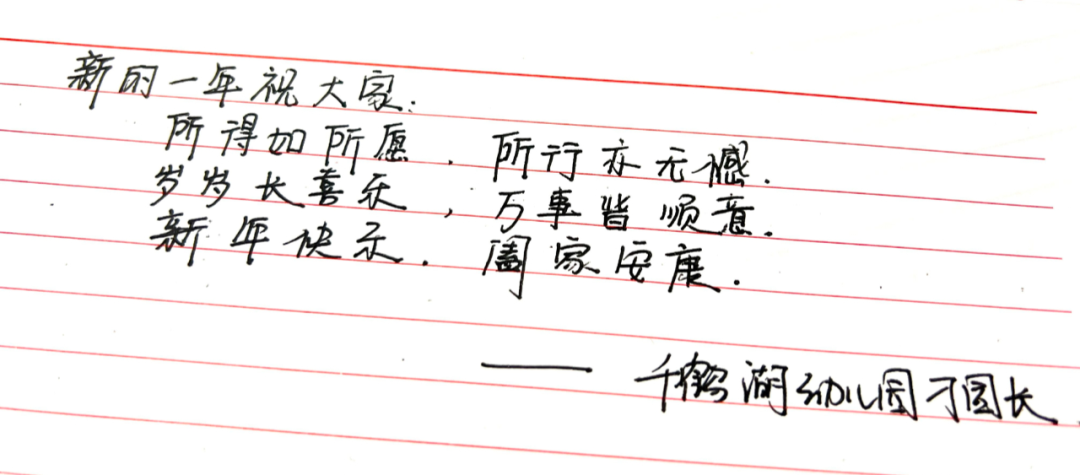 新的一年祝大家.
所得如所愿.所行亦无憾.
岁岁长喜乐,万事皆顺意.
新年快乐.阖家安康.
——千鹤湖幼儿园刁园长